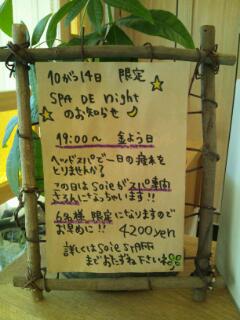 10から14日 限定
SPA DE night
のお知らせ
19:00〜 金よう日
ヘッドスパで一日の疲れを
とりませんか?
この日はSoieがスパ専門
さろんになっちゃいます!!
6名様限定になりますので
お早めに!! 4200yen
詳しくはsoie STAFF
までおたずね下さいね